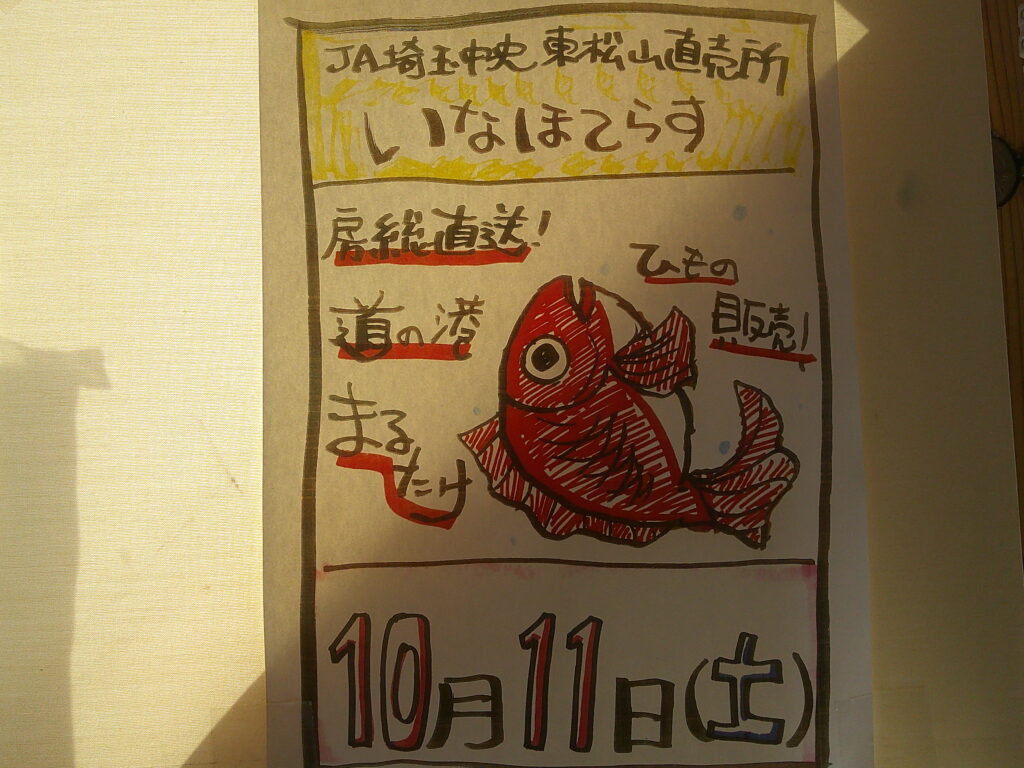 JA埼玉中央 東松山直売所
いなほてらす
房総直送!
ひもの
販売!
道の港
まる
たけ
10月11日(土)